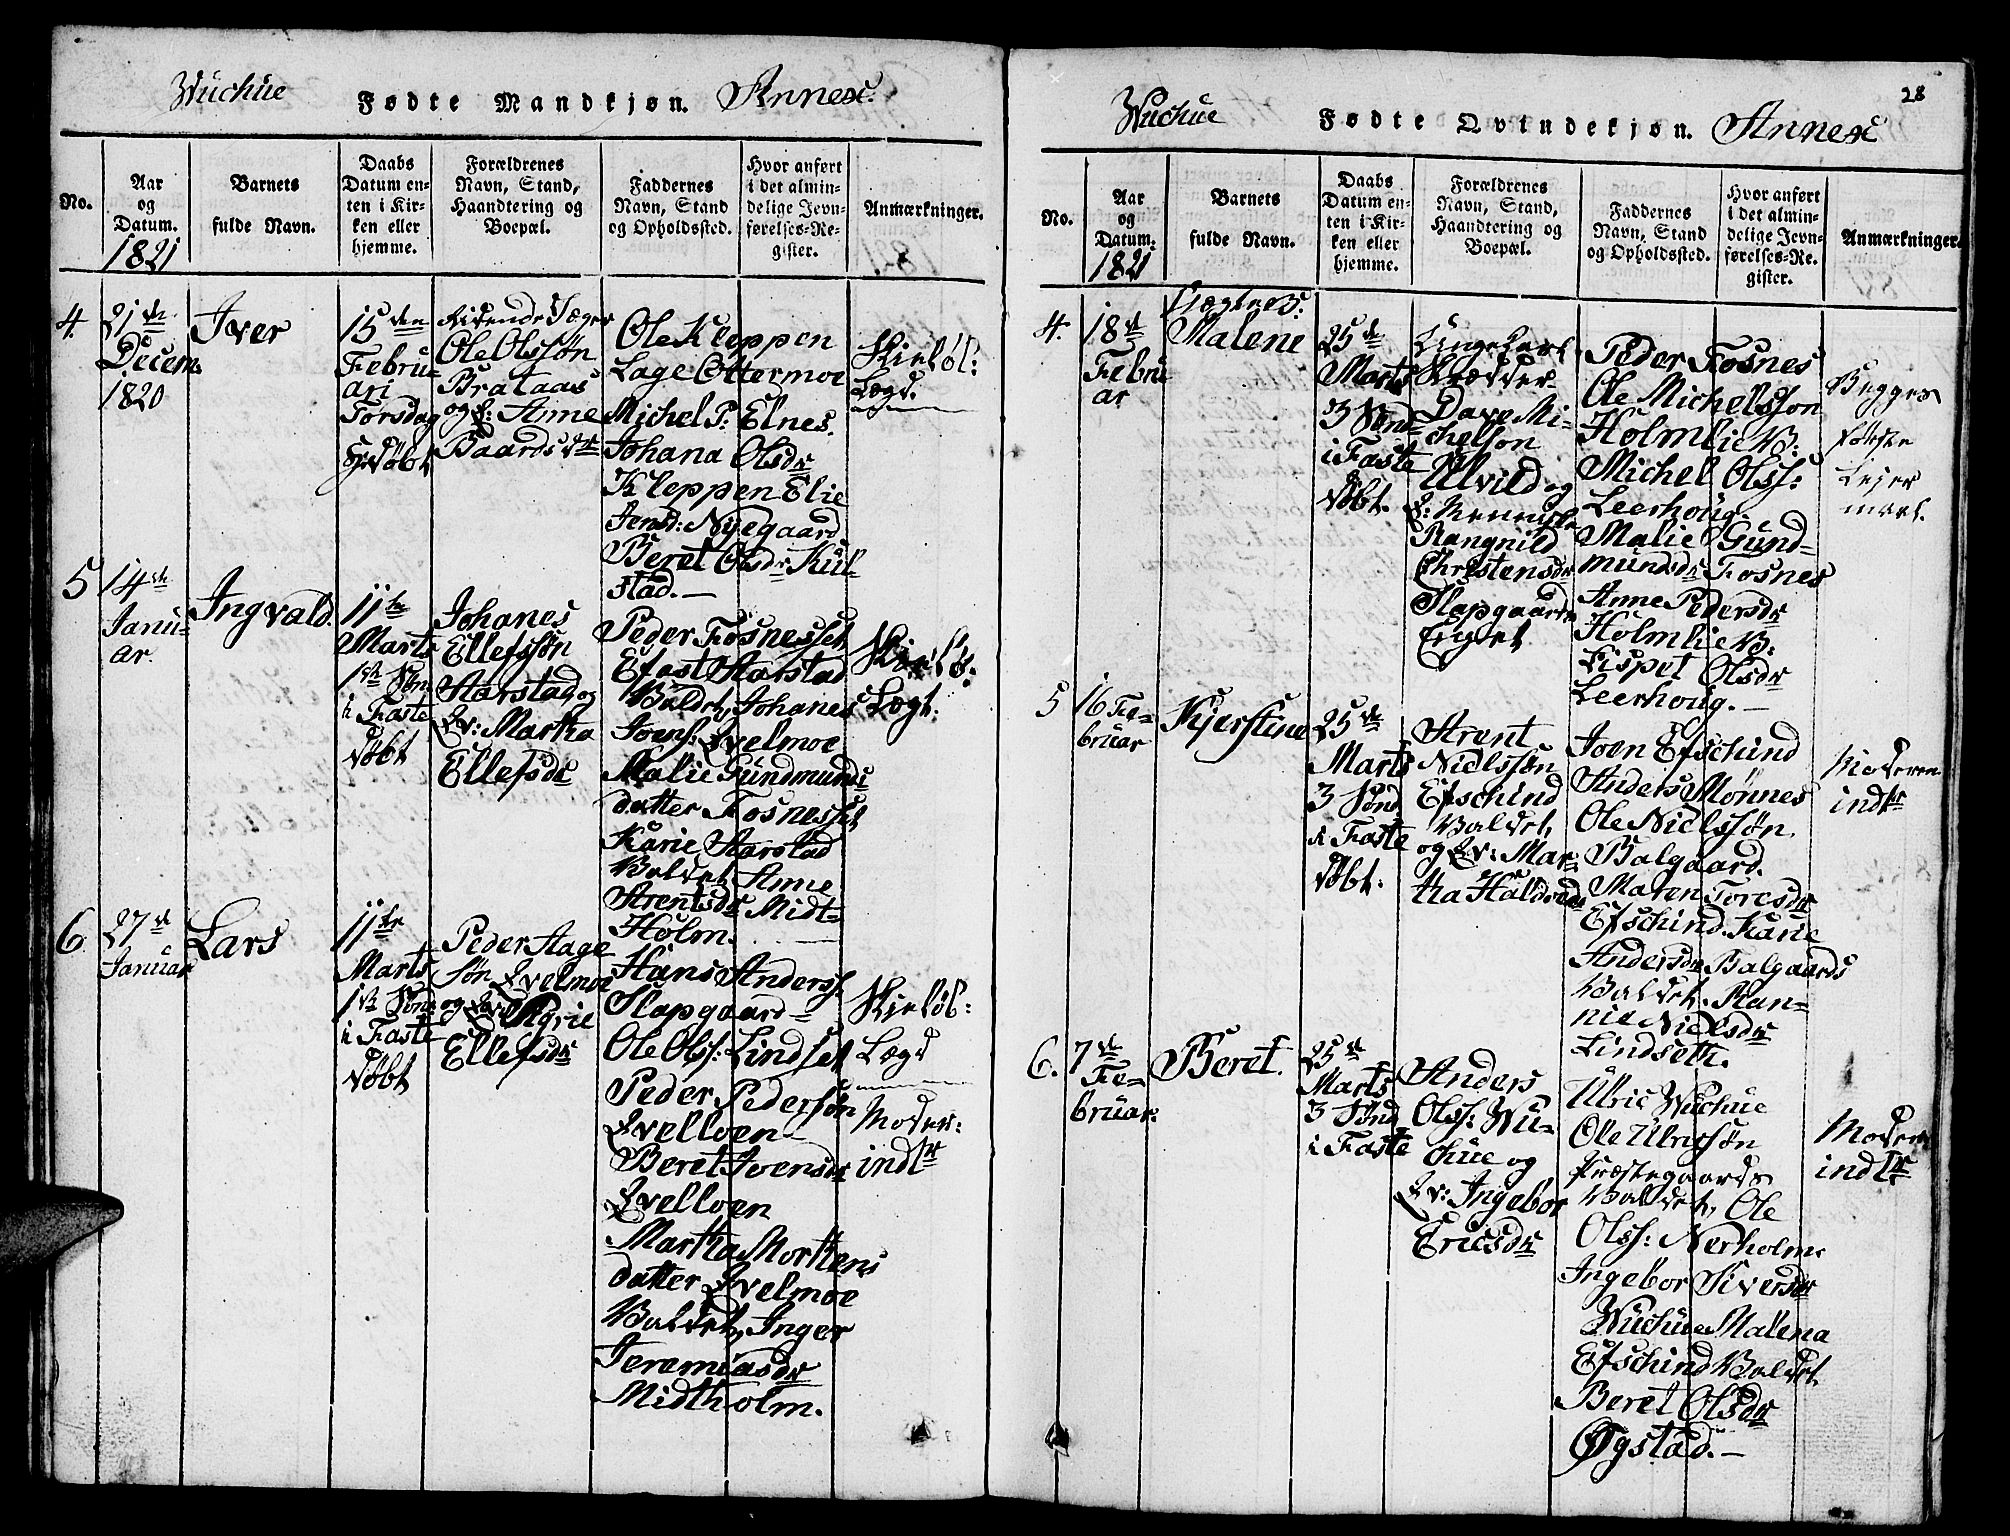 Wuchue Fødte Mandkjøn. Annex.
No.
Aar
og
Datum.
1821
Barnets
fulde Navn.
Daabs
Datum en-
ten i Kir-
ken eller
hjemme.
Forældrenes
Navn, Stand,
Haandtering og
Boepæl.
Faddernes
Navn, Stand
og Opholdssted.
Hvor anført
i det almin-
delige Jevn-
førelses-Re-
gister.
Anmærkninger.
4.
21de
Decem.
1820
Iver
15den
Febru-
ari
Torsdag
døbt
Ridende Jæger
Ole Olssøn
Brataas
og k: Anne
Baardsdr
Ole Kleppen
Lage Ottermoe
Michel P: Elnes.
Johana Olsdr
Kleppen Elie
Jensd: Nyegaard
Beret Olsdr Kul-
stad.
Skieløb:
Lægd.
5
14de
Janu-
ar.
Ingvald.
11te
Marts
1ste Sön
i Faste
døbt
Johanes
Ellefssøn
Starstad og
Kv: Martha
Ellefsdr
Peder Fosnesset
Efast Starstad
Valdet, Johanes
Joens: Qvelmoe
Malie Gundmunds
datter Fosnesset
Karie Starstad
Valdet Anne
Arentsdr Midt-
Holm.
Lægt.
6.
27de
Januar
Lars
11te
Marts
1ste Sön
i Faste
døbt
Peder Aage
søn Qvelmoe
og Kv: Marie
Ellefsdr
Hans Anderss.
Slapgaard
Ole Olss: Lindset
Peder Pedersøn
Qvelloen
Beret Joensdr
Qvelloen
Martha Mortens
datter Qvelmoe
Valdet, Inger
Jeremiasdr
Midtholm.
Skieløb:
Lægd
Moder:
indlr
28
Wuchue Fødte Qvindekjøn. Annex
No.
Aar
og
Datum.
1821
Barnets
fulde Navn.
Daabs
Datum en-
ten i Kir-
ken eller
hjemme.
Forældrenes
Navn, Stand,
Haandtering og
Boepæl.
Faddernes
Navn, Stand
og Opholdssted.
Hvor anført
i det almin-
delige Jevn-
førelses-Re-
gister.
Anmærkninger.
4.
18de
Febru
ar
Uægte B:
Malene
25de
Marts
3 Sönd
i Faste
døbt.
Ungekarl
Skredder
Dave Mi-
chelson
Ulvild og
Rangnild
Christensdr
Slapgaards
Enget
Peder Fosnes
Ole Michelsson
Holmlie V.
Michel Olss:
Leerhoug.
Malie Gund-
mundsdr Fosnes
Anne Pedersdr
Holmlie V:
Lispet Olsdr
Leerhoug.
Begges
første
Lejer
maal.
5
16 Fe-
bruar
Kjerstine
25de
Marts
3 Sönd
i Faste
døbt.
Arent
Nielssøn
Efschind
Valdet,
og Kv: Mar-
tha Haldords
Joen Efschind
Anders Mønnes
Ole Nielssøn.
Balgaard.
Maren Toresdr
Efschind. Karie
Andersdr Balgaards
Valdet. Ran-
nie Nielsdr
Lindseth.
Moderen
indlr
6.
7de
Fe-
bruar.
Beret.
25de
Marts
3 Sönd
i Faste
Anders
Olss: Wu-
chue og
Kv: Ingebor
Ericsdr
Ulric Wuchue
Ole Ulricsøn
Præstegaards
Valdet, Ole
Olss: Nerholm
Ingebor Siversdr
Wuchue Malena
Efschind Valdet
Beret Olsdr
Øgstad.
Moderen
indlr